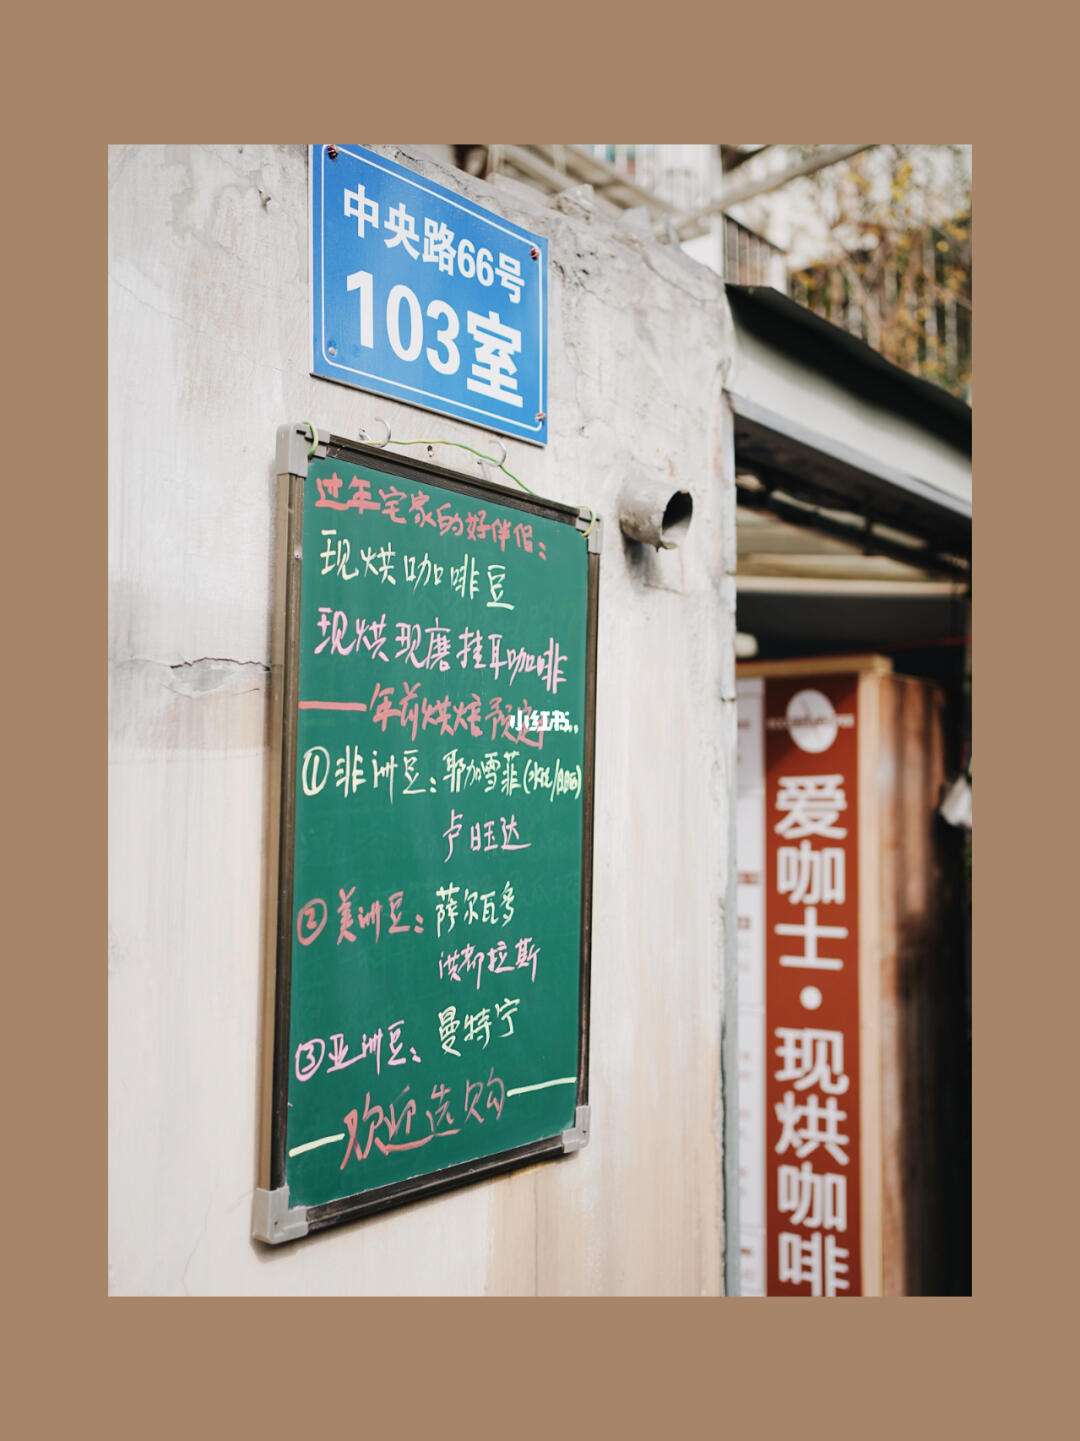 中央路66号
103室
过年宅家的好伴侣:
现烘咖啡豆
现烘现磨挂耳咖啡
——年前烘焙预定
小红书
①非洲豆:耶加雪菲(水洗/日晒)
卢旺达
②美洲豆:萨尔瓦多
洪都拉斯
③亚洲豆:曼特宁
——欢迎选购——
爱咖士·现烘咖啡